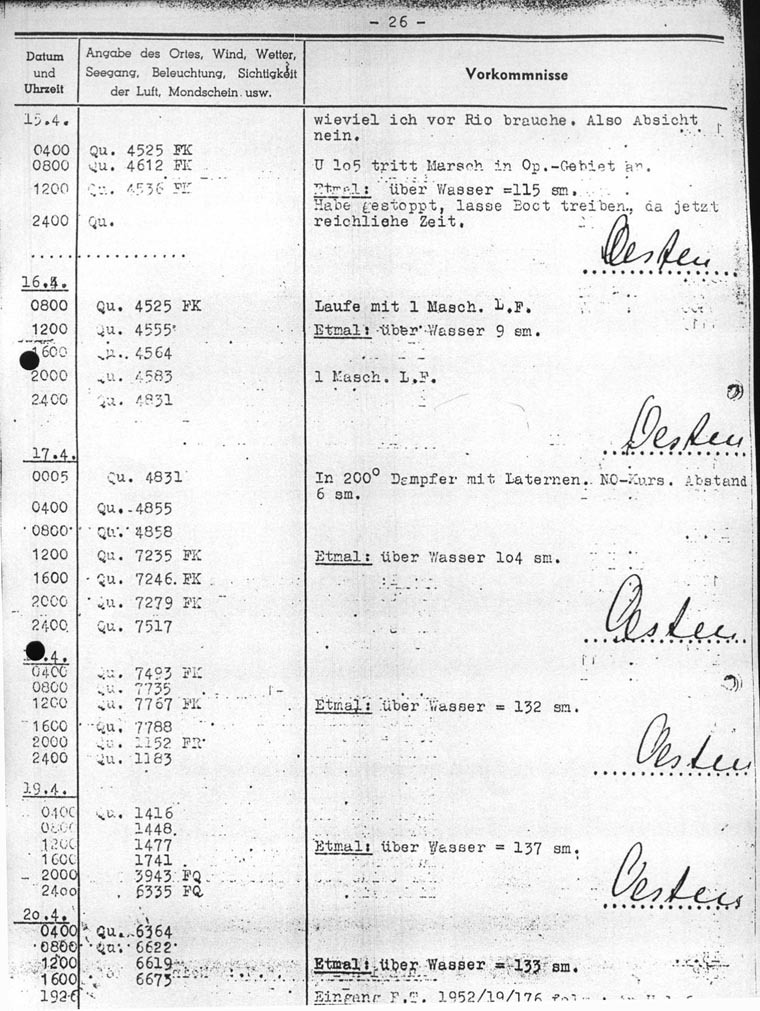 - 26 -
Datum
und
Uhrzeit
Angabe des Ortes, Wind, Wetter,
Seegang, Beleuchtung, Sichtigkeit
der Luft, Mondschein usw.
Vorkommnisse
15.4.
wieviel ich vor Rio brauche. Also Absicht
nein.
0400 Qu. 4525 FK
0800 Qu. 4612 FK U lo5 tritt Marsch in Op.-Gebiet an.
1200 Qu. 4536 FK Etmal: über Wasser =115 sm.
Habe gestoppt, lasse Boot treiben, da jetzt
2400 Qu. reichliche Zeit.
Oesten
16.4.
0800 Qu. 4525 FK Laufe mit 1 Masch. L.F.
1200 Qu. 4555 Etmal: über Wasser 9 sm.
1600 Qu. 4564
2000 Qu. 4583 1 Masch. L.F.
2400 Qu. 4831
Oesten
17.4.
0005 Qu. 4831 In 200° Dampfer mit Laternen. NO-Kurs. Abstand
6 sm.
0400 Qu. 4855
0800 Qu. 4858
1200 Qu. 7235 FK Etmal: über Wasser lo4 sm.
1600 Qu. 7246 FK
2000 Qu. 7279 FK
2400 Qu. 7517
Oesten
.4.
0400 Qu. 7493 FK
0800 Qu. 7735
1200 Qu. 7767 FK Etmal: über Wasser = 132 sm.
1600 Qu. 7788
2000 Qu. 1152 FR
2400 Qu. 1183
Oesten
19.4.
0400 Qu. 1416
0800 1448
1200 1477 Etmal: über Wasser = 137 sm.
1600 1741
2000 3943 FQ
2400 6335 FQ
Oesten
2o.4.
0400 Qu. 6364
0800 Qu. 6622
1200 6619 Etmal: über Wasser = 133 sm.
1600 6675
1926 Eingang F.T. 1952/19/176